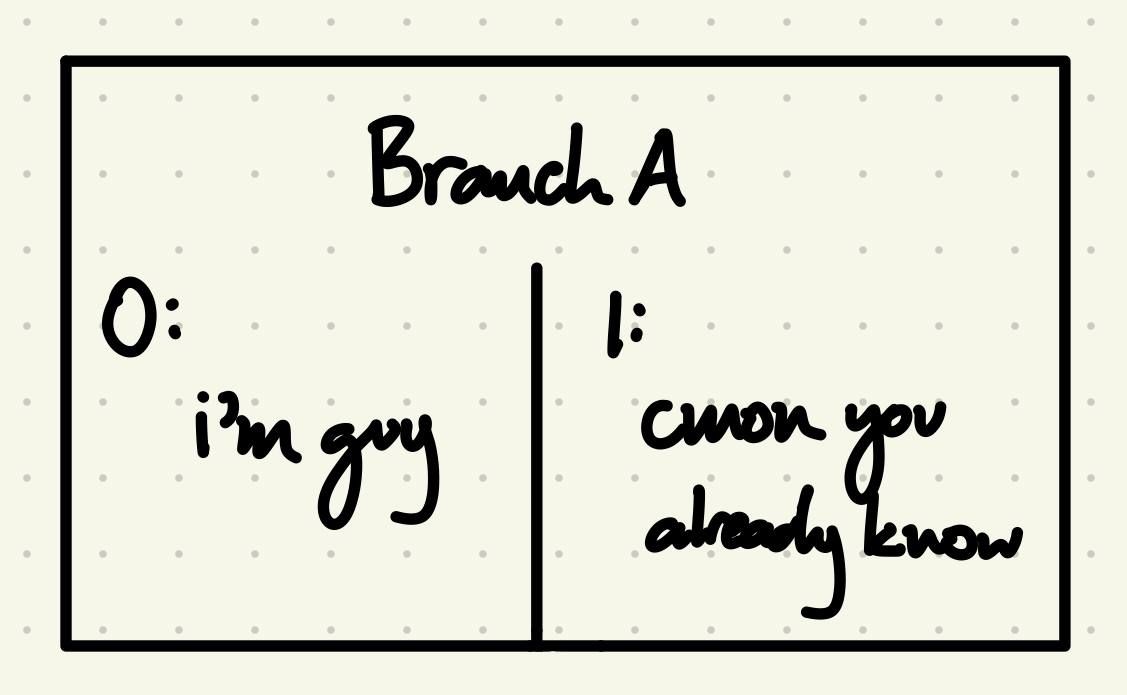 Branch A
0:
i'm guy
1:
cmon you
already know